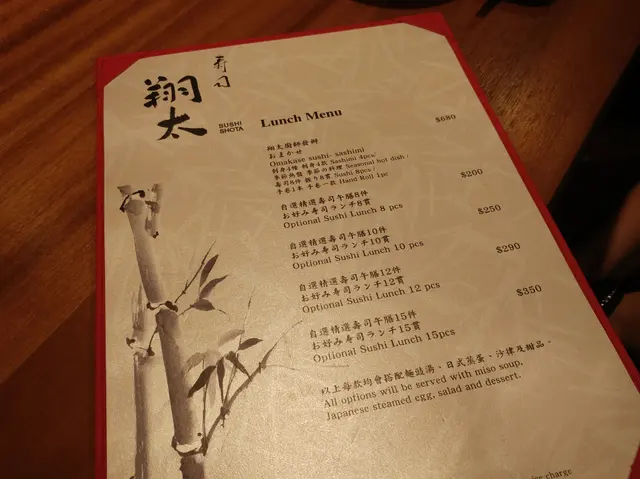 寿司
翔太
SUSHI
SHOTA
Lunch Menu
$680
翔太廚師發辦
おまかせ
Omakase sushi- sashimi
刺身4種 刺身4款 Sashimi 4pcs/
季節熱盤 季節の料理 Seasonal hot dish /
壽司8件 握り8貫 Sushi 8pcs /
手卷1本 手卷一款 Hand Roll 1pc
$200
自選精選壽司午膳8件
お好み寿司ランチ8貫
Optional Sushi Lunch 8 pcs
$250
自選精選壽司午膳10件
お好み寿司ランチ10貫
Optional Sushi Lunch 10 pcs
$290
自選精選壽司午膳12件
お好み寿司ランチ12貫
Optional Sushi Lunch 12 pcs
$350
自選精選壽司午膳15件
お好み寿司ランチ15貫
Optional Sushi Lunch 15pcs
以上每款均會搭配麵豉湯、日式蒸蛋、沙律及甜品。
All options will be served with miso soup.
Japanese steamed egg, salad and dessert.
charge